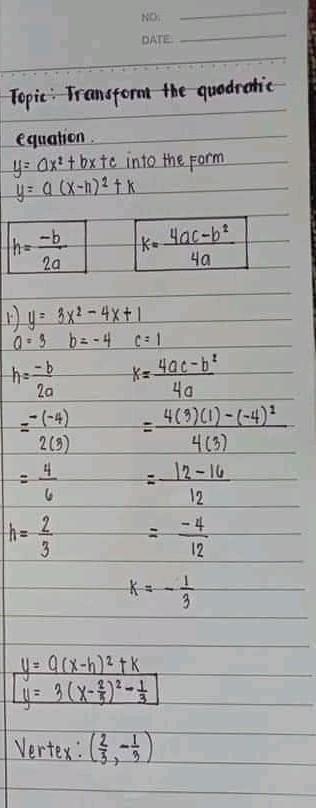 NO:
DATE:
Topic: Transform the quadratic
equation.
y= ax²+bx+c into the form
y= a (x-h)²+k
h= -b/2a
k= 4ac-b²/4a
1.) y= 3x²-4x+1
a=3 b=-4 c=1
h= -b/2a k= 4ac-b²/4a
= -(-4)/2(3) = 4(3)(1)-(-4)²/4(3)
= 4/6 = 12-16/12
h= 2/3 = -4/12
k = -1/3
y= a(x-h)²+k
y= 3(x-2/3)²-1/3
Vertex: (2/3, -1/3)